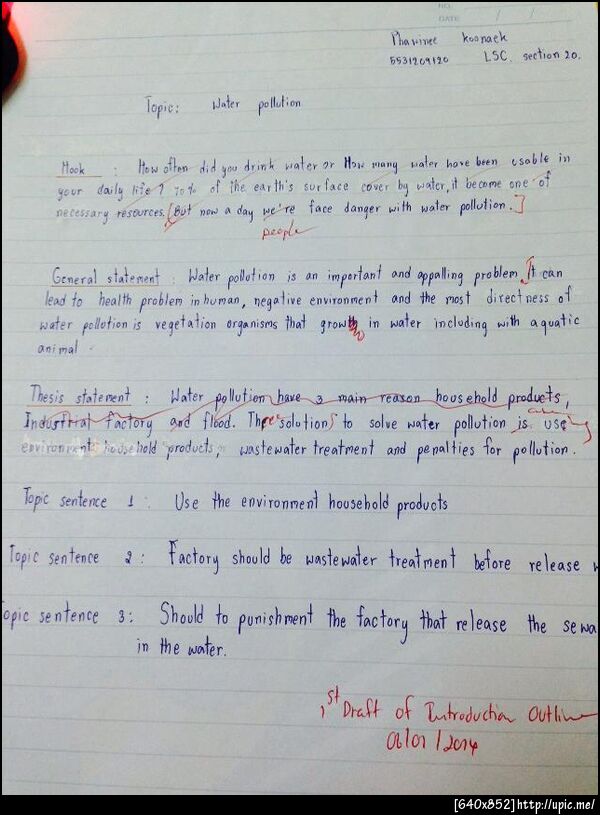 NO.
DATE / /
Phavinee Koonaek
5531209120 LSC. section 20.
Topic: Water pollution
Hook : How often did you drink water or How many water have been usable in
your daily life ? 70% of the earth's surface cover by water, it become one of
necessary resources. [But now a day we're face danger with water pollution.]
people
General statement : Water pollution is an important and appalling problem. It can
lead to health problem in human, negative environment and the most directness of
water pollution is vegetation organisms that growth in water including with aquatic
animal.
Thesis statement : Water pollution have 3 main reason household products,
Industrial factory and flood. The solution to solve water pollution is use
environment household products, wastewater treatment and penalties for pollution.
Topic sentence 1 : Use the environment household products
Topic sentence 2 : Factory should be wastewater treatment before release w
Topic sentence 3 : Should to punishment the factory that release the sewa
in the water.
1st Draft of Introduction Outline
/2014
[640x852]http://upic.me/